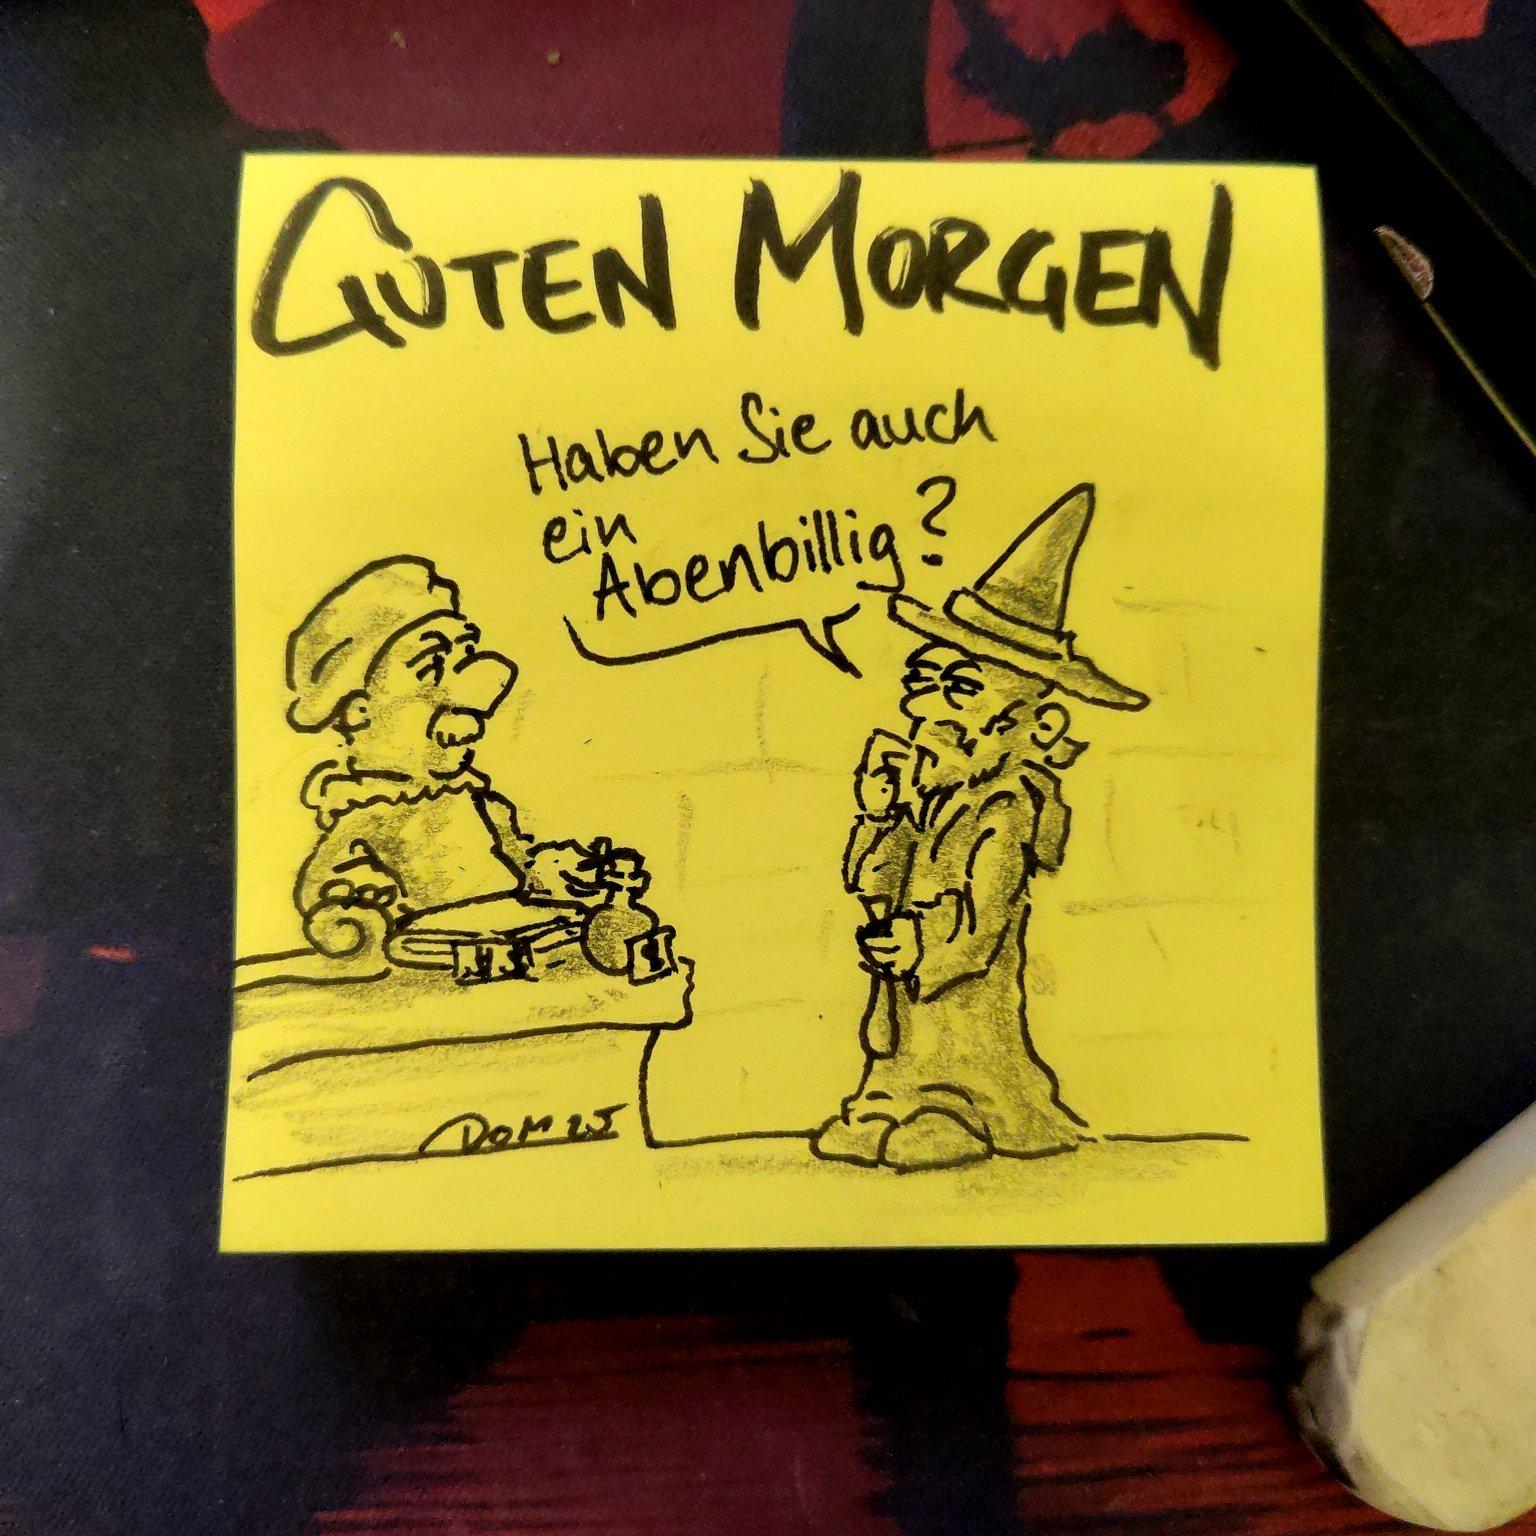 GUTEN MORGEN
Haben Sie auch
ein
Abenbillig?
DOM 25